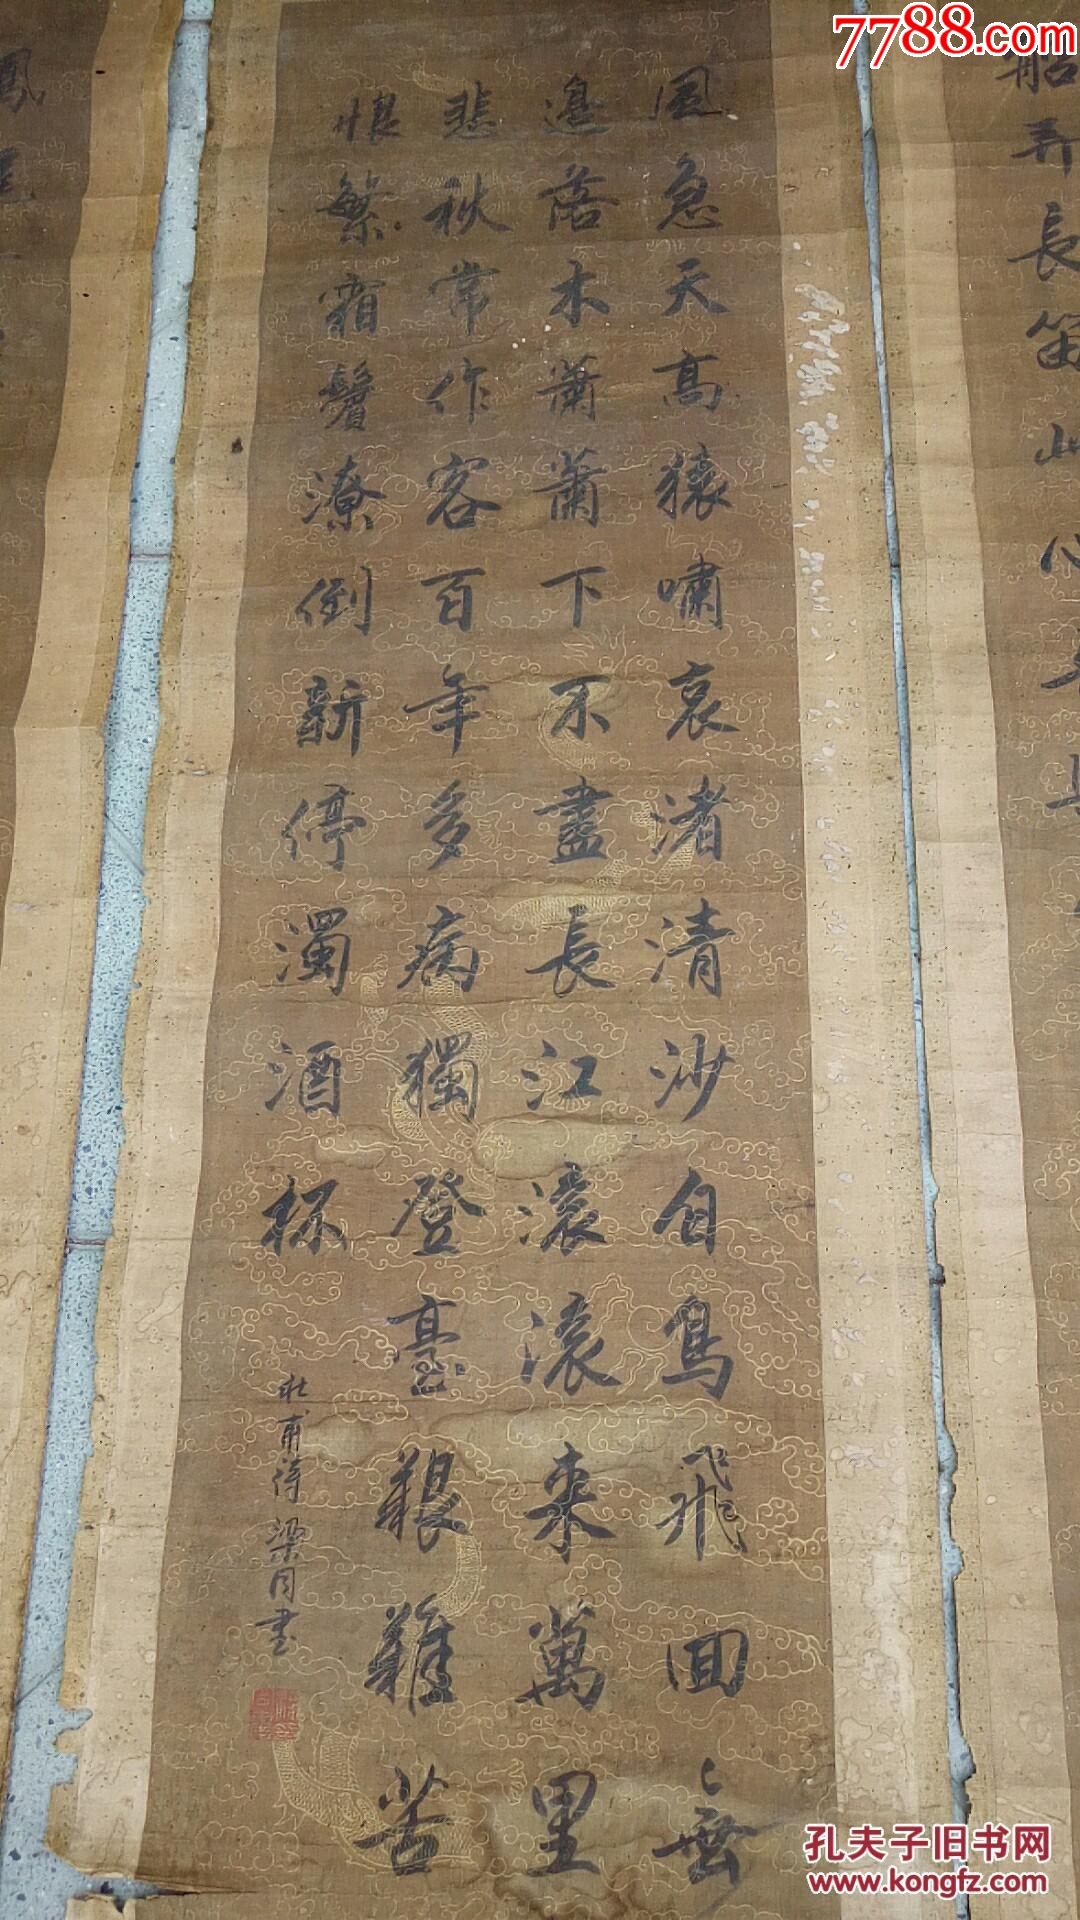 7788.com
船弄長笛此心
風急天高猿嘯哀渚清沙白鳥飛回無
邊落木蕭蕭下不盡長江滾滾來萬里
悲秋常作客百年多病獨登臺艱難苦
恨繁霜鬢潦倒新停濁酒杯
杜甫詩 梁同書
鳳
孔夫子旧书网
www.kongfz.com